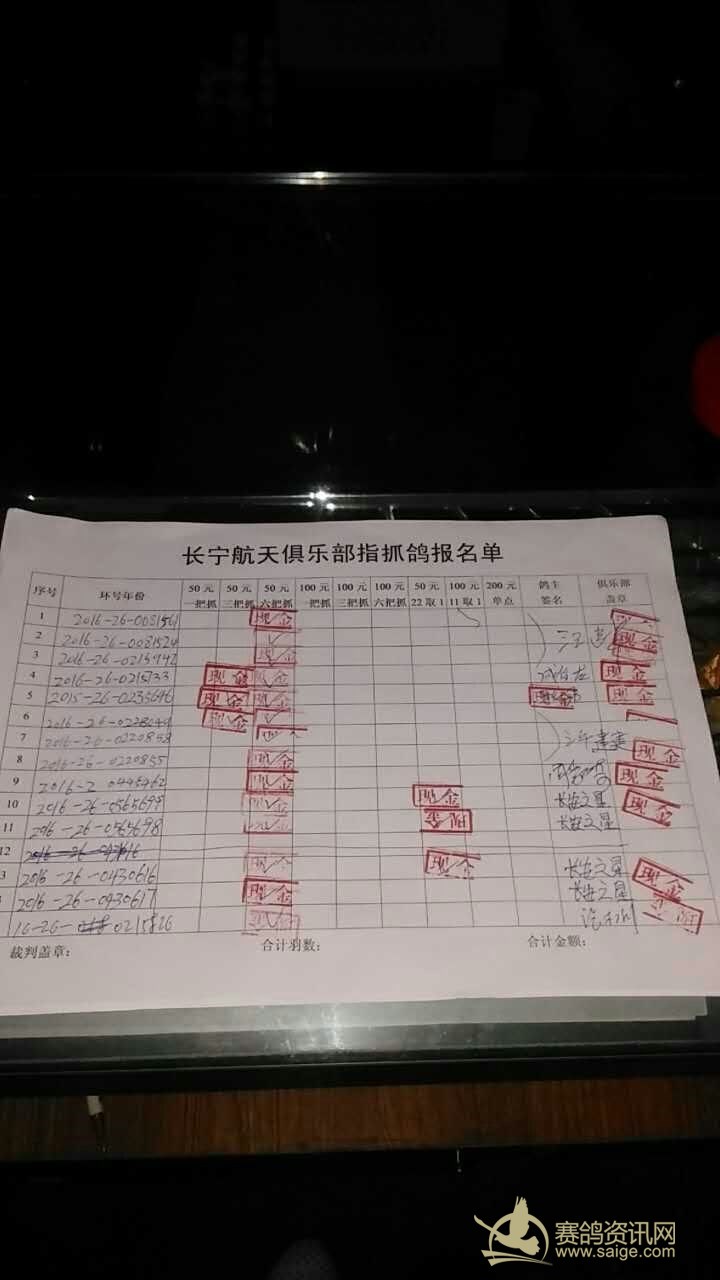 长宁航天俱乐部指抓鸽报名单
序号 环号年份 50元一把抓 50元三把抓 50元六把抓 100元一把抓 100元三把抓 100元六把抓 50元22取1 100元11取1 200元单点 鸽主签名 俱乐部盖章
1 2016-26-0081561 现金 现金
2 2016-26-0081524 现金
3 2016-26-0215942 现金
4 2016-26-0215733 现金 现金 现金
5 2015-26-0235646 现金 现金 现金 现金
6 现金
7
8 2016-26-0220855 现金 现金
9 现金 现金
10 2016-26-0565699 现金 现金 长安之星 现金
11 2016-26-0565698 现金 现金 长安之星
12
3 2016-26-0430616 现金 现金 长安之星 现金
2016-26-0430617 现金 长安之星
16-26- 0215826 现金 现金
裁判盖章: 合计羽数: 合计金额:
赛鸽资讯网
www.saige.com